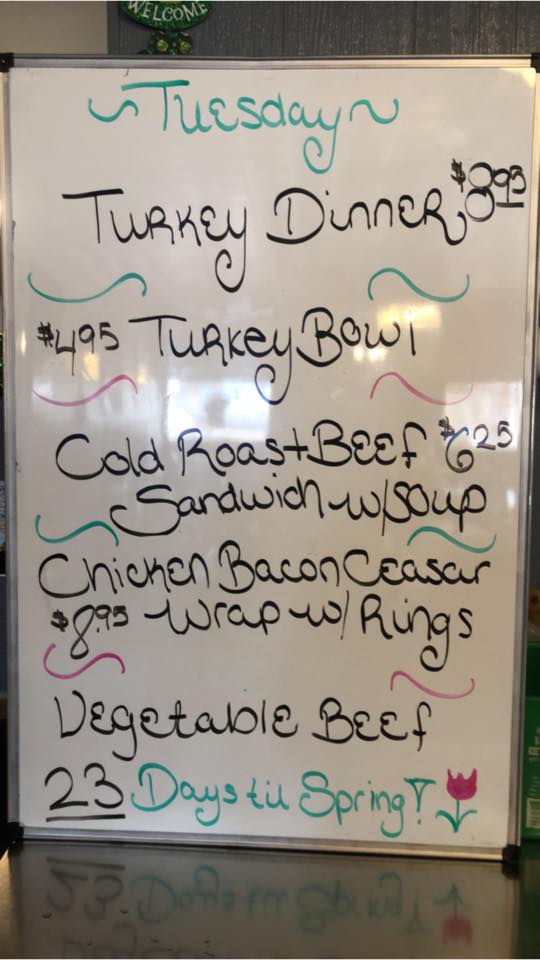 WELCOME
~Tuesday~
Turkey Dinner $8.95
$4.95 Turkey Bowl
Cold Roast Beef $6.25
Sandwich w/soup
Chicken Bacon Ceasar
$8.95 Wrap w/ Rings
Vegetable Beef
23 Days til Spring!